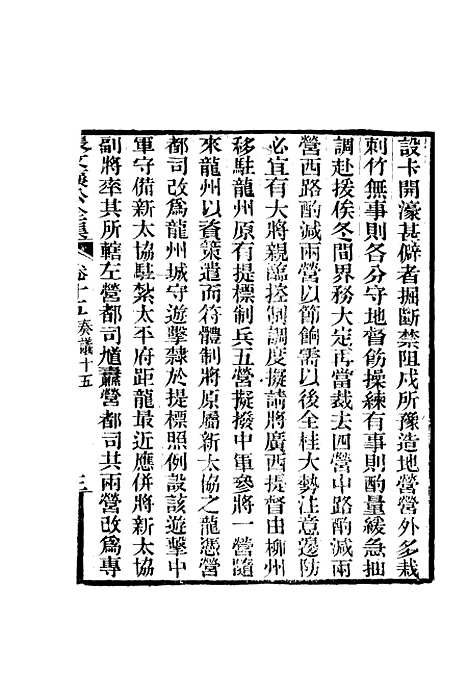 設卡開濠甚僻者掘斷禁阻戍所豫造地營營外多栽
刺竹無事則各分守地督飭操練有事則酌量緩急抽
調赴援俟冬間界務大定再當裁去四營中路酌減兩
營西路酌減兩營以節餉需以後全桂大勢注意邊防
必宜有大將親臨控制調度擬請將廣西提督由柳州
移駐龍州原有提標制兵五營擬撥中軍參將一營隨
來龍州以資策遣而符體制將原屬新太協之龍憑營
都司改爲龍州城守遊擊隸於提標照例設該遊擊中
軍守備新太協駐紮太平府距龍最近應併將新太協
副將率其所轄左營都司馗纛營都司共兩營改爲專
張文襄公全集 卷十五 奏議十五